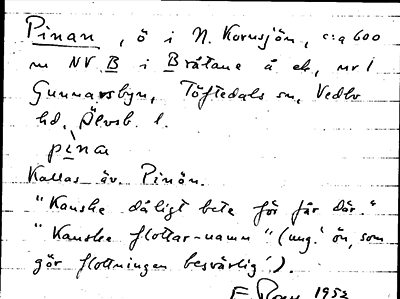 Pinan, ö i N. Kornsjön, c:a 600
m NV B i Bråtane å ek, nr 1
Gunnarsbyn, Töftedals sn, Vedbo
hd, Älvsb. l.
pìna
Kallas äv. Pinön.
"Kanske dåligt bete för får där."
"Kanske flottar-namn" (ung.' ön, som
gör flottningen besvärlig').
1952